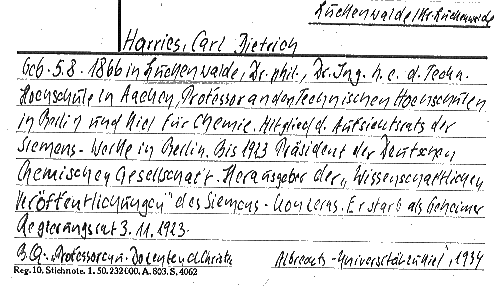 Luckenwalde/Kr. Luckenwalde
Harries, Carl Dietrich
Geb. 5.8. 1866 in Luckenwalde, Dr. phil., Dr. Ing. h. c. d. Techn.
Hochschule in Aachen, Professor an den Technischen Hochschulen
in Berlin und Kiel für Chemie. Mitglied d. Aufsichtsrats der
Siemens-Werke in Berlin. Bis 1923 Präsident der Deutschen
Chemischen Gesellschaft. Herausgeber der „Wissenschaftlichen
Veröffentlichungen" des Siemens-Konzerns. Er starb als Geheimer
Regierungsrat 3. 11. 1923.
Professoren u. Dozenten d. Christ. Albrechts-Universität zu Kiel, 1934
Reg. 10. Stichnote. 1. 50. 232 000. A. 803. S. 4062